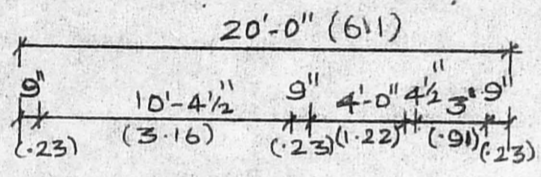 20'-0" (6.1)
9" 10'-4½" 9" 4'-0" 4½" 3' 9"
(.23) (3.16) (.23) (1.22) (.91) (.23)